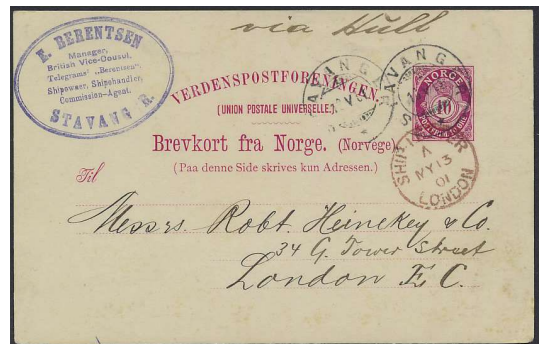 via Hull
E. BERENTSEN
Manager,
British Vice-Consul,
Telegrams „Berentsen“,
Shipowner, Shipchandler,
Commission-Agent.
STAVANG
VERDENSPOSTFORENINGEN.
(UNION POSTALE UNIVERSELLE.)
NORGE
10
STAVANG
Brevkort fra Norge. (Norvege)
(Paa denne Side skrives kun Adressen.)
SHIP LETTER
A
MY 13
01
LONDON
Til
Messrs. Robt. Heinekey & Co.
34 G. Tower Street
London E C.